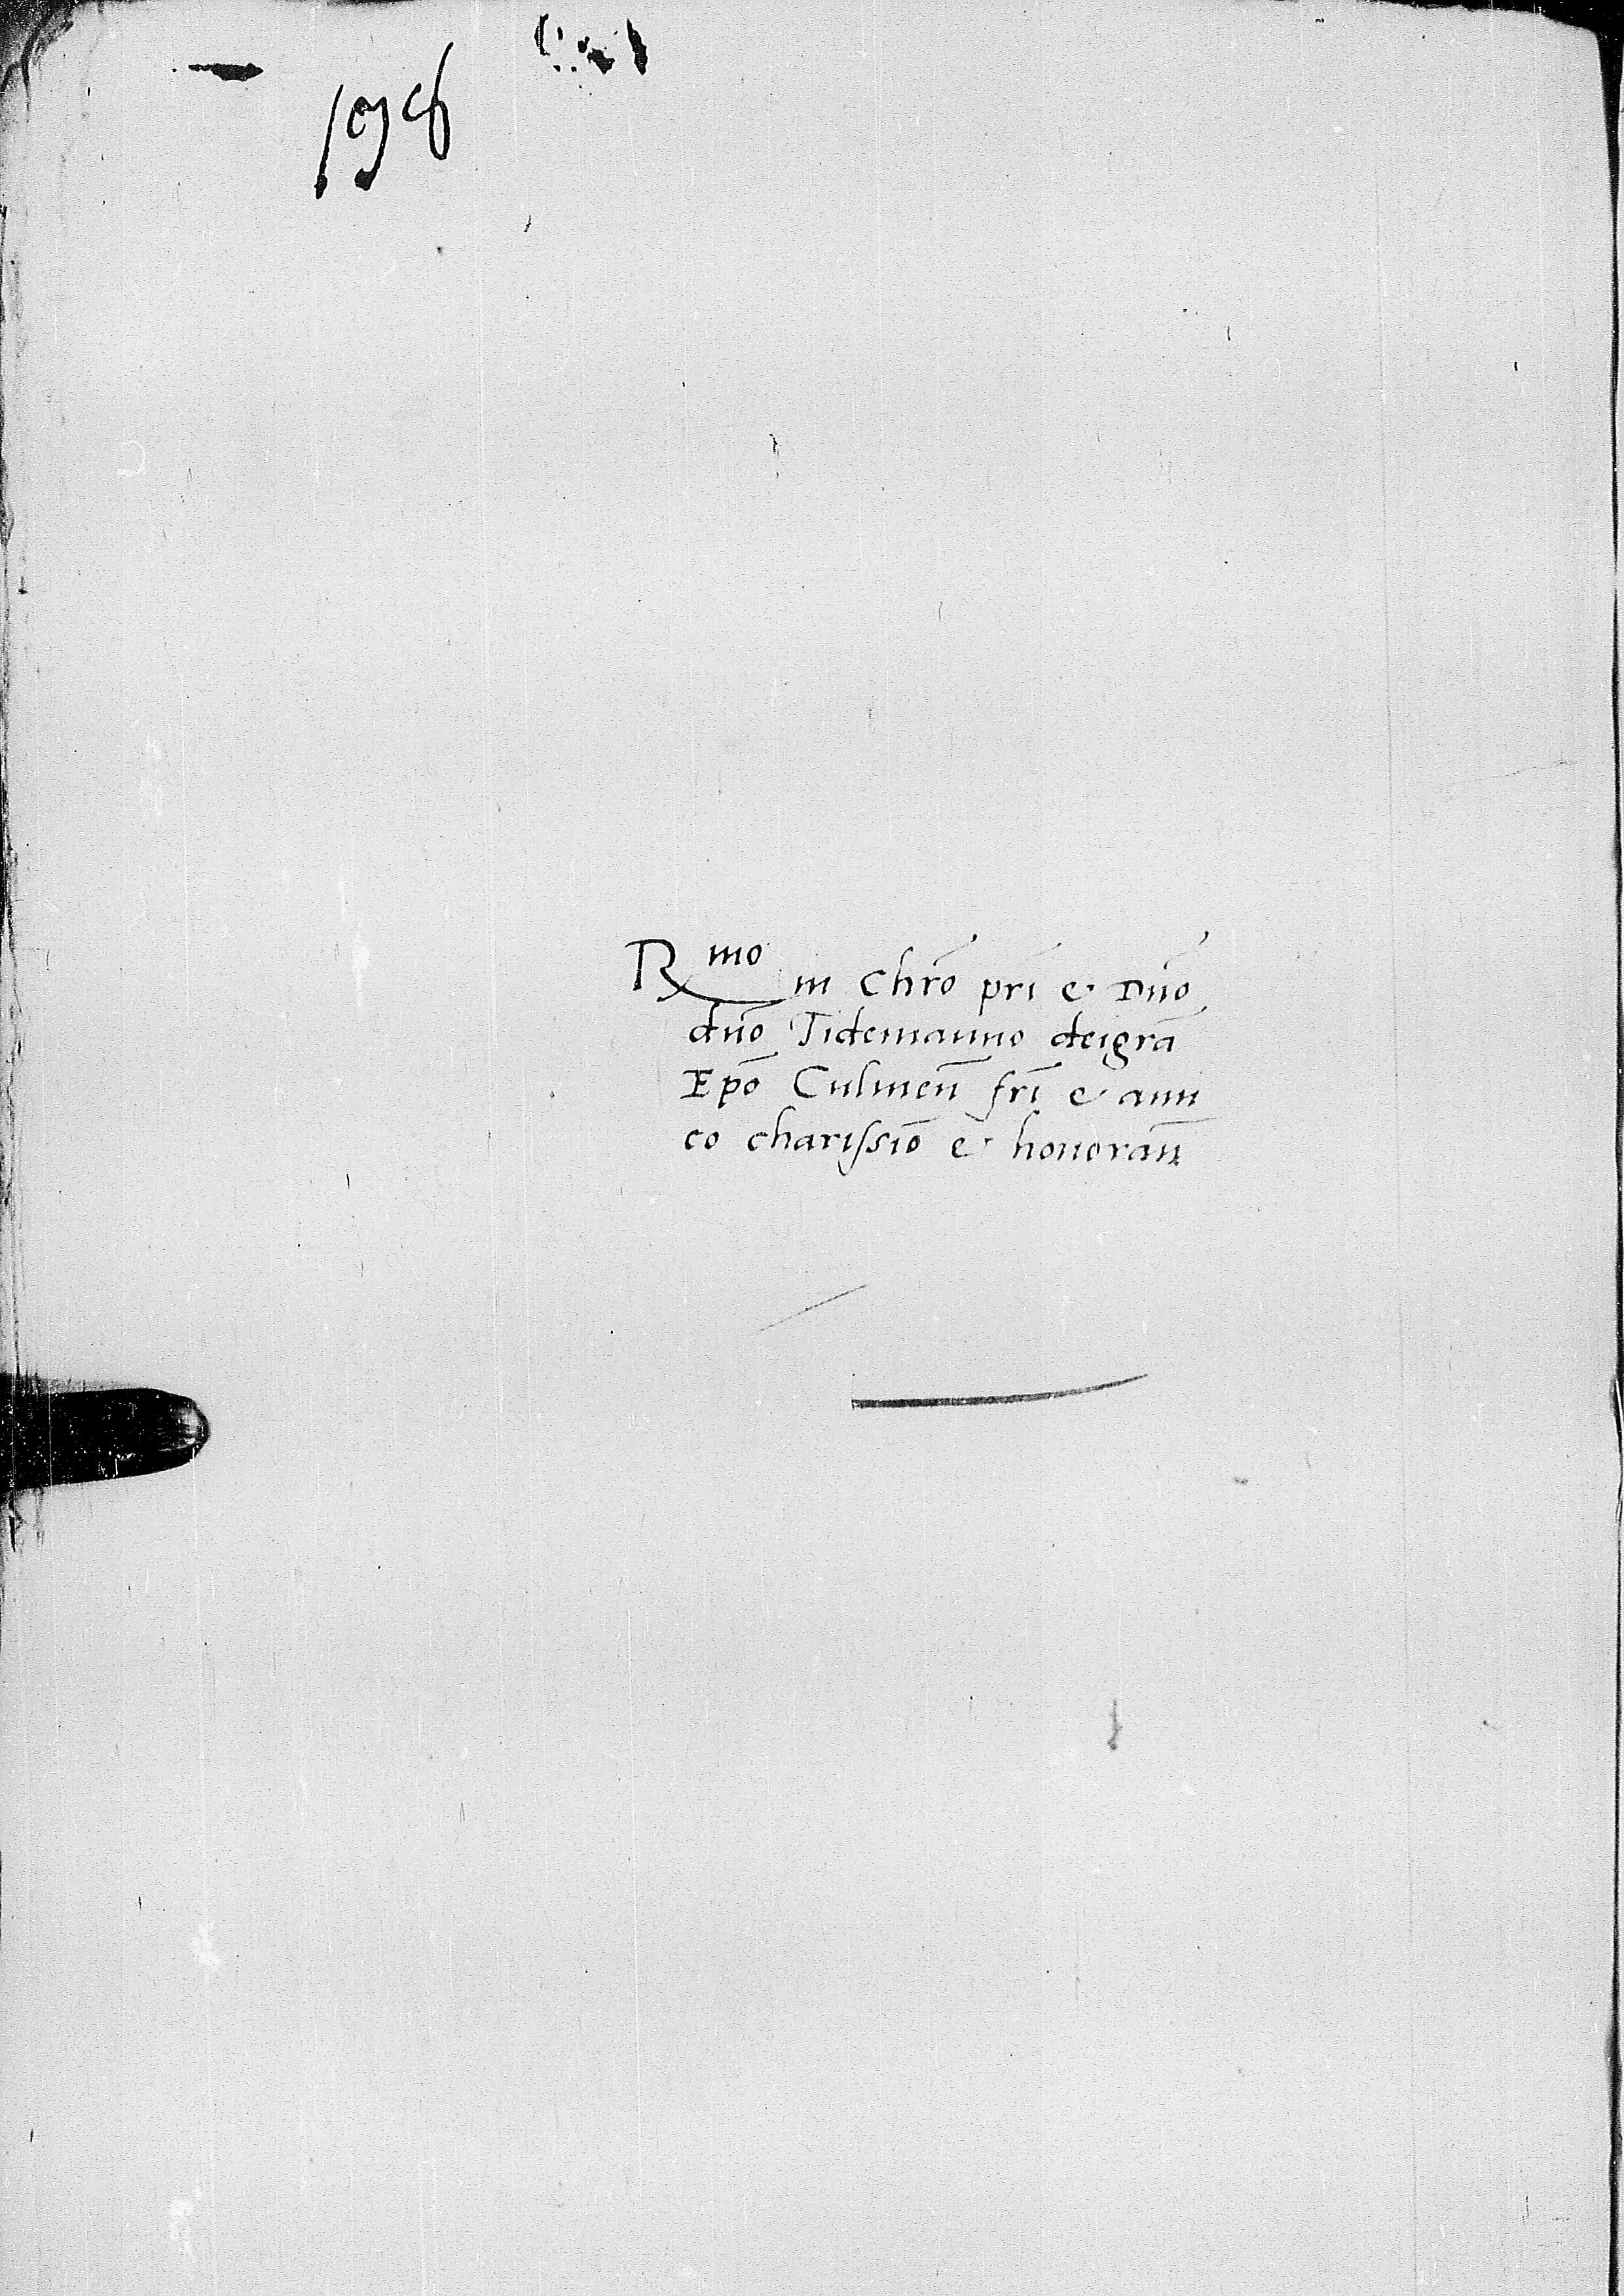 R mo in Chr̄o pr̄i & Dn̄o
dn̄o Tidemanno deigr̄a
Ep̄o Culmen̄ fr̄i & ami
co charissīo & honoran̄